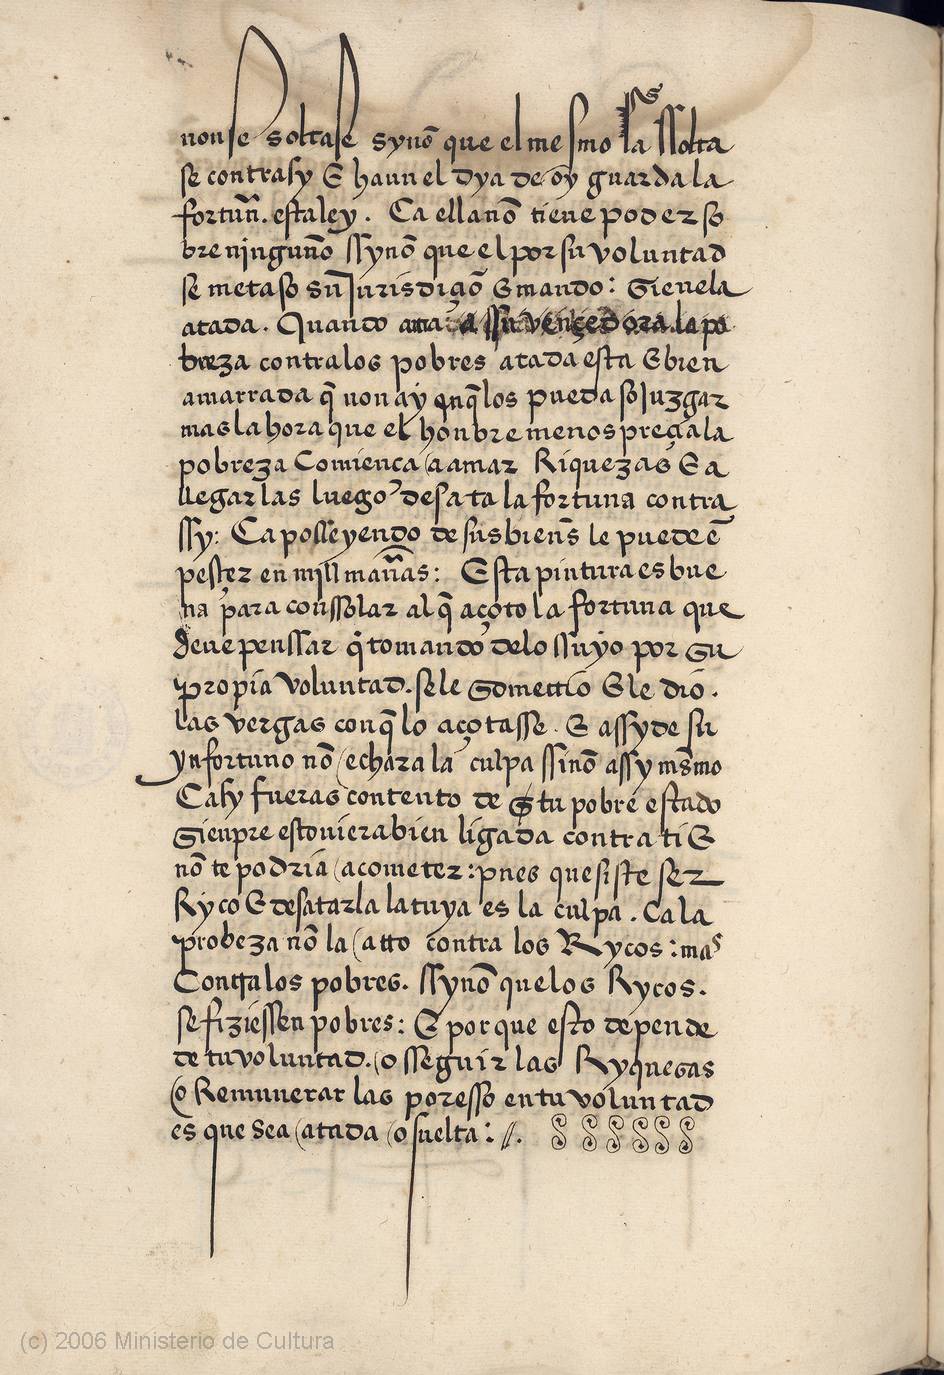 nonse soltase synõ que el mesmo la ssolta
se contrasy E haun el dya de oy guarda la
fortuñ. esta ley. Ca ella nõ tiene poder so
bre ninguño ssynõ que el por su voluntad
se meta so su Jurisdiçiõ E mando: Sienela
atada. Quando ssu vençedora la po
breza contra los pobres atada esta E bien
amarrada q̃ non ay q̃los pueda soJuzgar
mas la hora que el honbre menospreçia la
pobreza Comiença a amar Riquezas E a
llegar las luego desata la fortuna contra
ssy: Ca posseyendo de sus bienẽs le puede ẽ
pesçer en mill mañas: Esta pintura es bue
na para conssolar al q̃ açoto la fortuna que
deue penssar q̃ tomando de lo ssuyo por su
propia voluntad. se le sometio E le dio.
las vergas con q̃ lo açotasse. E assy de su
ynfortuno nõ echara la culpa ssinõ assy mesmo
Ca sy fueras contento de tu pobre estado
sienpre estouiera bien ligada contra ti E
nõ te podria acometer: pues quesiste ser
Ryco E desatarla la tuya es la culpa. Ca la
probeza nõ la atto contra los Rycos: mas
Contra los pobres. ssynõ que los Rycos.
se fiziessen pobres: E por que esto depende
de tu voluntad. o sseguir las Ryquesas
o Remunerar las por esso en tu voluntad
es que sea atada o suelta: //.
(c) 2006 Ministerio de Cultura